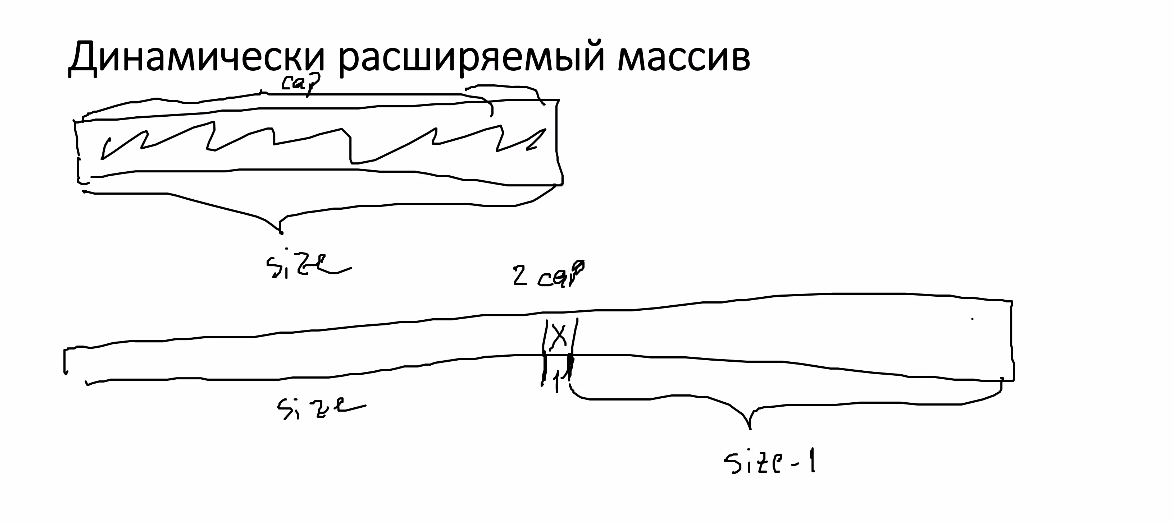 Динамически расширяемый массив
cap
size
2 cap
X
1
size
size-1